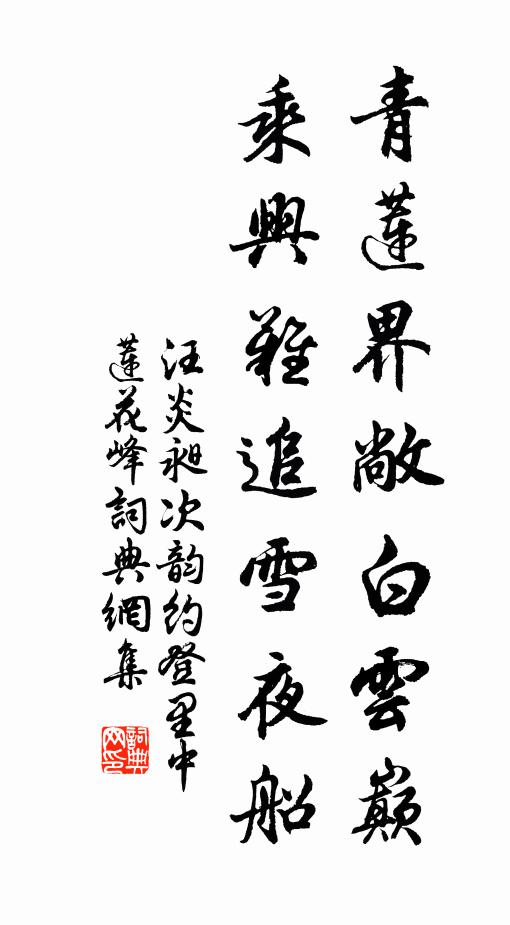 青蓮界敞白雲巔
乘興難追雪夜船
汪炎昶次韵約登里中
蓮花峰詞典網集
詞典
网印